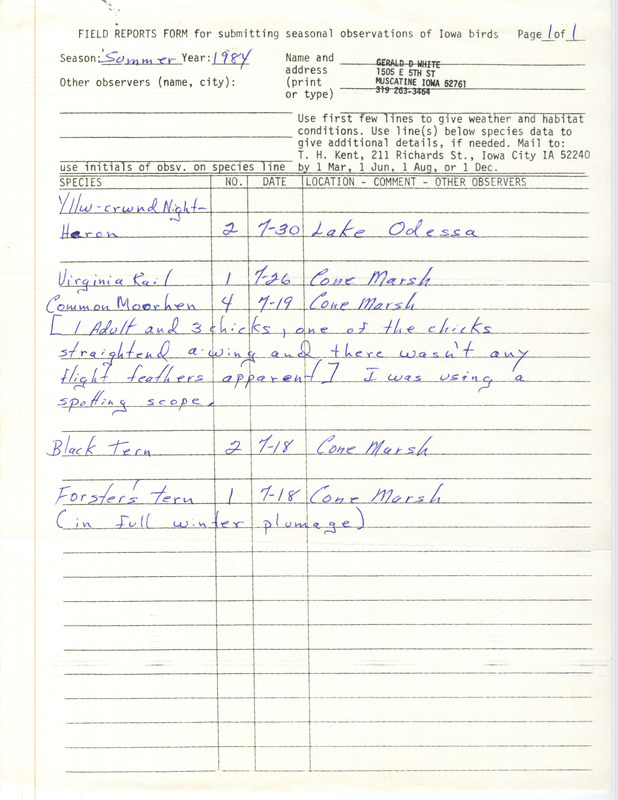 FIELD REPORTS FORM for submitting seasonal observations of Iowa birds Page 1 of 1
Season: Summer Year: 1984 Name and
address
(print
or type)
GERALD D WHITE
1505 E 5TH ST
MUSCATINE IOWA 52761
319 263-3464
Other observers (name, city):
Use first few lines to give weather and habitat
conditions. Use line(s) below species data to
give additional details, if needed. Mail to:
T. H. Kent, 211 Richards St., Iowa City IA 52240
by 1 Mar, 1 Jun, 1 Aug, or 1 Dec.
use initials of obsv. on species line
SPECIES NO. DATE LOCATION - COMMENT - OTHER OBSERVERS
Yllw-crwnd Night-
Heron 2 7-30 Lake Odessa
Virginia Rail 1 7-26 Cone Marsh
Common Moorhen 4 7-19 Cone Marsh
[ 1 Adult and 3 chicks, one of the chicks
straightend a wing and there wasn't any
flight feathers apparent ] I was using a
spotting scope.
Black Tern 2 7-18 Cone Marsh
Forster's tern 1 7-18 Cone Marsh
(in full winter plumage)